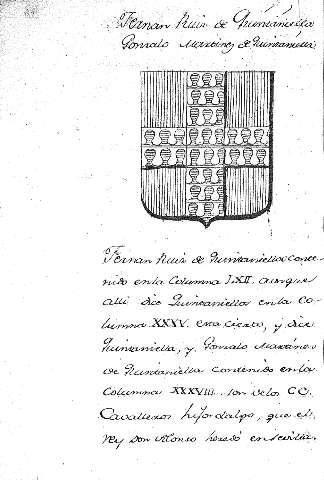 Fernan Ruiz de Quintaniella
Gonzalo Martinez de Quintaniella
Fernan Ruiz de Quintaniella conte-
nido en la Columna LXII. aunque
alli dice Quintaniella en la Co-
lumna XXXV. esta cierto, y dice
Quintaniella, y Gonzalo Martinez
de Quintaniella contenido en la
Columna XXXVIII. son de los CC.
Cavalleros hijosdalgo, que el
rey Don Alonso heredó en Sevilla.